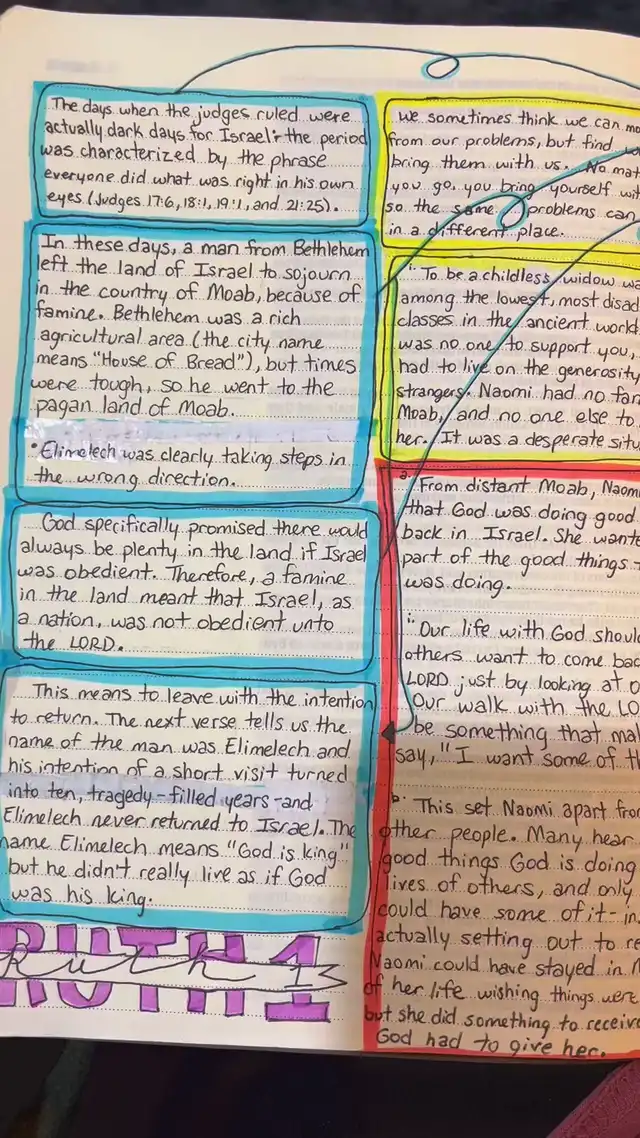 The days when the judges ruled were
actually dark days for Israel: the period
was characterized by the phrase
everyone did what was right in his own
eyes (Judges 17:6, 18:1, 19:1, and 21:25).
In these days, a man from Bethlehem
left the land of Israel to sojourn
in the country of Moab, because of
famine. Bethlehem was a rich
agricultural area (the city name
means "House of Bread"), but times
were tough, so he went to the
pagan land of Moab.
Elimelech was clearly taking steps in
the wrong direction.
God specifically promised there would
always be plenty in the land if Israel
was obedient. Therefore, a famine
in the land meant that Israel, as
a nation, was not obedient unto
the LORD.
This means to leave with the intention
to return. The next verse tells us the
name of the man was Elimelech and
his intention of a short visit turned
into ten, tragedy-filled years-and
Elimelech never returned to Israel. The
name Elimelech means "God is king"
but he didn't really live as if God
was his king.
RUTH 1
Ruth 1
We sometimes think we can
from our problems, but find
bring them with us. No
you go, you bring yourself
so the same problems can
in a different place.
"To be a childless widow
among the lowest, most
classes in the ancient
was no one to support you,
had to live on the generosity
strangers. Naomi had no
Moab, and no one else to
her. It was a desperate
From distant Moab,
that God was doing good
back in Israel. She
part of the good things
was doing.
"Our life with God
others want to come
LORD just by looking at
Our walk with the
be something that
say, "I want some of
This set Naomi apart
other people. Many hear
good things God is doing
lives of others, and only
could have some of it-
actually setting out to
Naomi could have stayed in
of her life wishing things were
but she did something to
God had to give her.